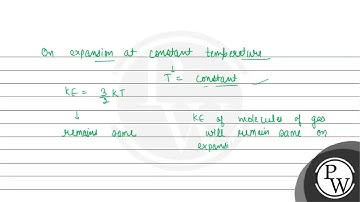 On expansion at constant temperature
↓
T = constant
KE = 3/2 KT
↓
remains same
KE of molecules of gas
will remain same on
expans
P
W